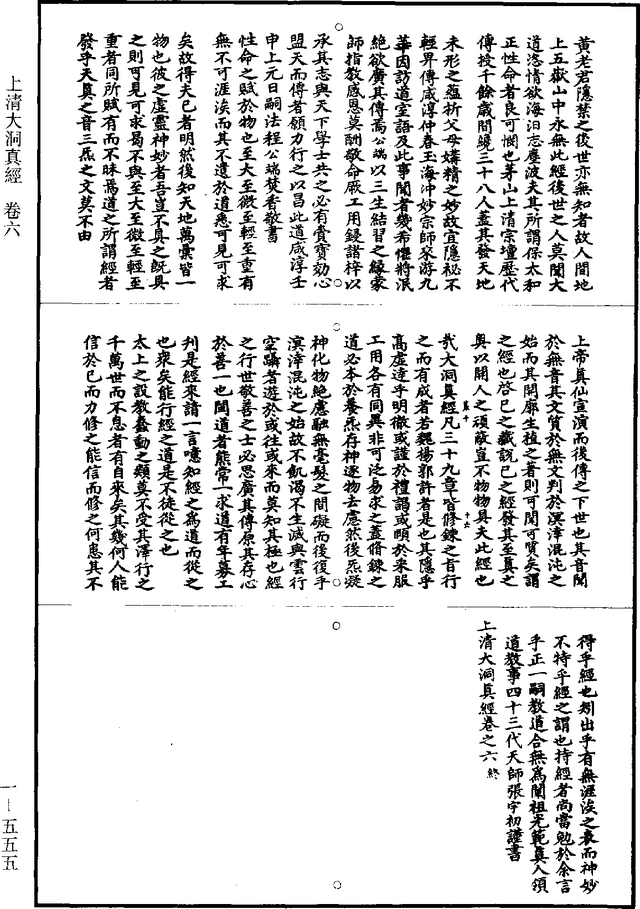 上清大洞真經 卷六
一—五五五
黃老君隱禁之後世亦無知者故人間地
上五嶽山中永無此經後世之人莫聞大
道恣情欲海汩志塵波夫其所謂保太和
正性命者良可憫也茅山上清宗壇歷代
傳授千餘歲間纔三十八人蓋其發天地
未形之蘊折父母媾精之妙故宜隱祕不
輕畀傳咸淳仲春玉海沖妙宗師來游九
華因訪道室語及此事聞者幾希懼將泯
絕欲廣其傳蔫公端以三生結習之緣蒙
師指教感恩莫酬敬命厥工用鋟諸梓以
承其志與天下學士共之必有貴寶効心
盟天而傳者願力行之以昌此道咸淳壬
申上元日嗣法程公端焚香敬書
性命之賦於物也至大至微至輕至重有
無不可涯涘而其不遺於道悉可見可求
矣故得夫已者明然後知天地萬彙皆一
物也彼之虛靈神妙者吾豈不具之既具
之則可見可求曷不與至大至微至輕至
重者同所賦有而不昧焉道之所謂經者
發乎天真之音三炁之文莫不由
上帝真仙宣演而後傳之下世也其音聞
於無音其文質於無文判於溟涬混沌之
始而其開廓生植之著則可聞可質矣謂
之經也啓已之藏說已之經發其至真之
奧以開人之頑蔽豈不物物具夫此經也
哉大洞真經凡三十九章皆修鍊之旨行
之而有成者若魏楊郭許者是也其隱乎
高虛達乎明徹或謹於禮謁或頤於來服
工用各有同異非可泛易求之蓋脩鍊之
道必本於養炁存神逐物去慮然後炁凝
神化物絕慮融無毫髮之間礙而後復乎
溟涬混沌之始故不飢渴不生滅與雲行
空躡者遊於或往或來而莫知其極也經
之行世敬善之士必思廣其傳原其存心
於善一也聞道者熊常一求道有年募工
刋是經來請一言噫知經之為道而從之
也衆矣能行經之道是不徒從之也
太上之設教蠢動之類莫不受其澤行之
千萬世而不息者有自來矣其幾何人能
信於已而力修之能信而修之何患其不
得乎經也矧出乎有無涯涘之表而神妙
不特乎經之謂也持經者尚當勉於余言
乎正一嗣教道合無為闡祖光範真人領
道教事四十三代天師張宇初謹書
上清大洞真經卷之六 終